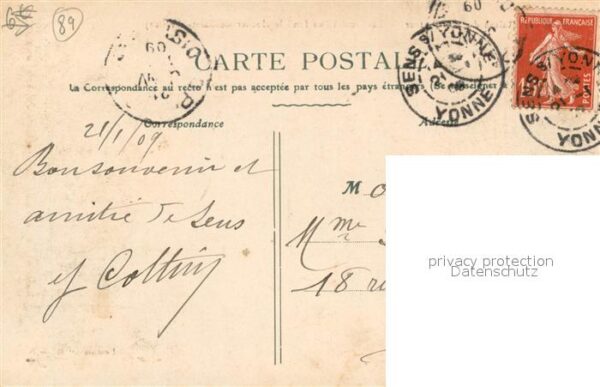 89
RÉPUBLIQUE FRANÇAISE
POSTES
SENS S/ YONNE
YONNE
SENS S/
YONNE
CARTE POSTALE
La Correspondance au recto n'est pas acceptée par tous les pays étrangers (Se renseigner à
Correspondance
Adresse
21/1/09
Bon souvenir et
amitié de Sens
M
Mme
18 rue
privacy protection
Datenschutz